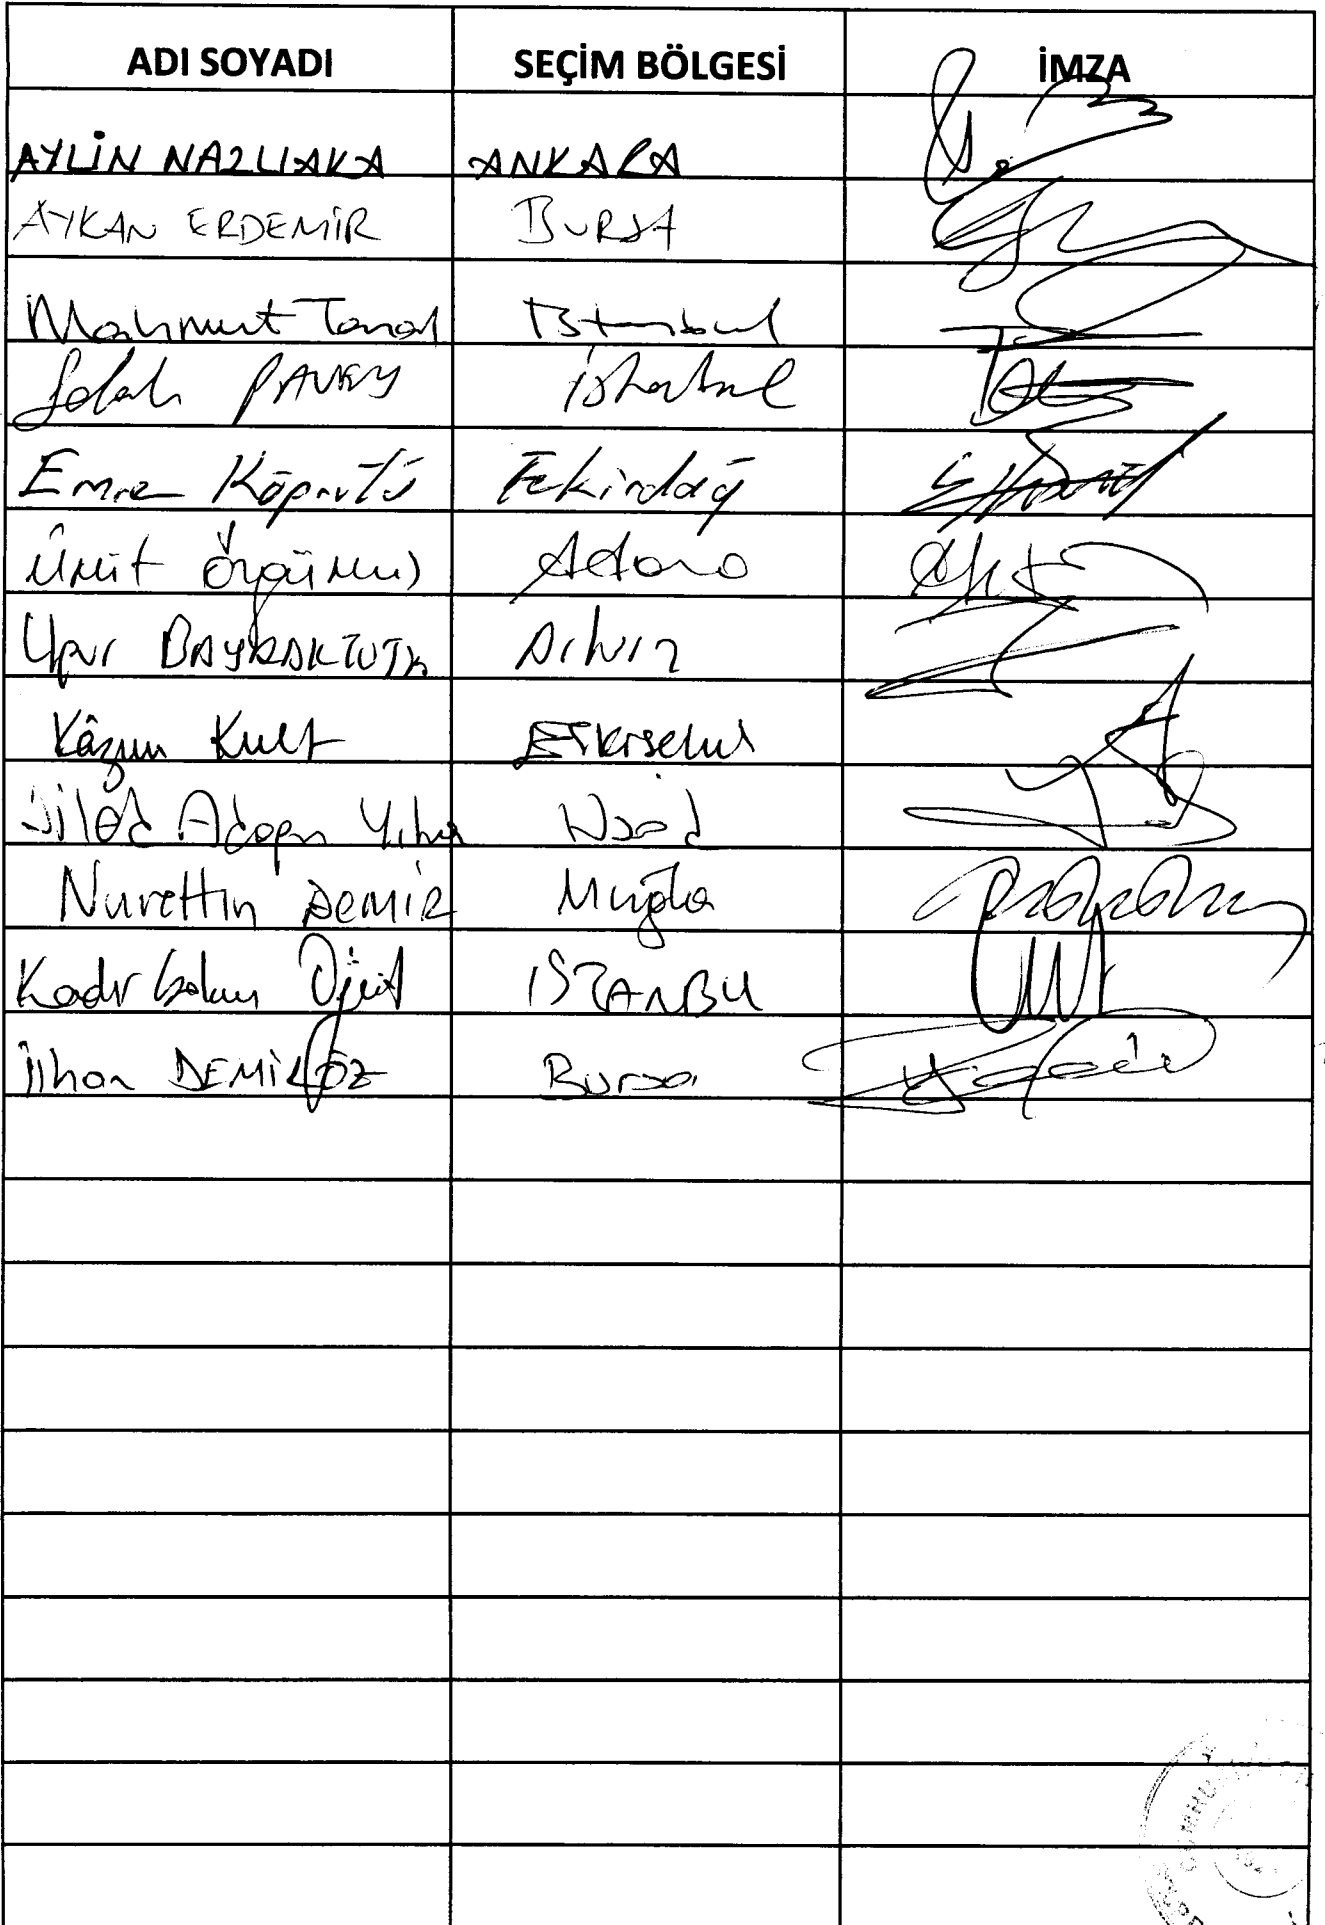 ADI SOYADI SEÇİM BÖLGESİ İMZA
AYLİN NAZLIAKA ANKARA
AYKAN ERDEMİR BURSA
Mahmut Tanal İstanbul
Şafak PAVEY İstanbul
Emre Köprülü Tekirdağ
Ümit Özgümüş Adana
Uğur BAYRAKTUTAN Artvin
Kâzım Kurt Eskişehir
Dilek Akagün Yılmaz Uşak
Nurettin DEMİR Muğla
Kadir Gökmen Öğüt İSTANBUL
İlhan DEMİRÖZ Bursa